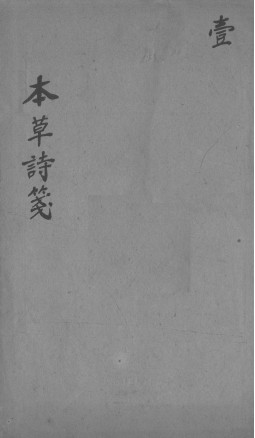 壹
本草詩箋